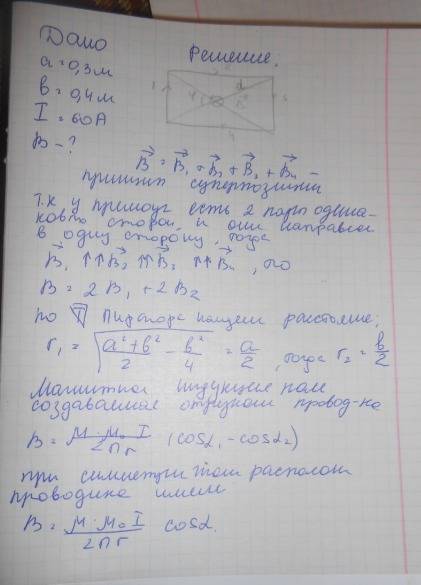 Дано
Решение:
a = 0,3 м
в = 0,4 м
I = 60 А
B - ?
B⃗ = B⃗₁ + B⃗₂ + B⃗₃ + B⃗₄ -
принцип суперпозиции
Т.к у прямоуг есть 2 пары одина-
ковых сторон, и они направлен
в одну сторону, тогда
B⃗₁ ↑↑ B⃗₂ ↑↑ B⃗₃ ↑↑ B⃗₄, то
B = 2 B₁ + 2 B₂
по T Пифагора найдем расстояние;
r₁ = √(a² + в²/2 - в²/4) = a/2, тогда r₂ = в/2
Магнитное индукция поле
создаваемое отрезком провод-ка
B = M M₀ I / 2πr (cosα₁ - cosα₂)
при симметричном располож
проводника имеем
B = M · M₀ I / 2πr cosα.